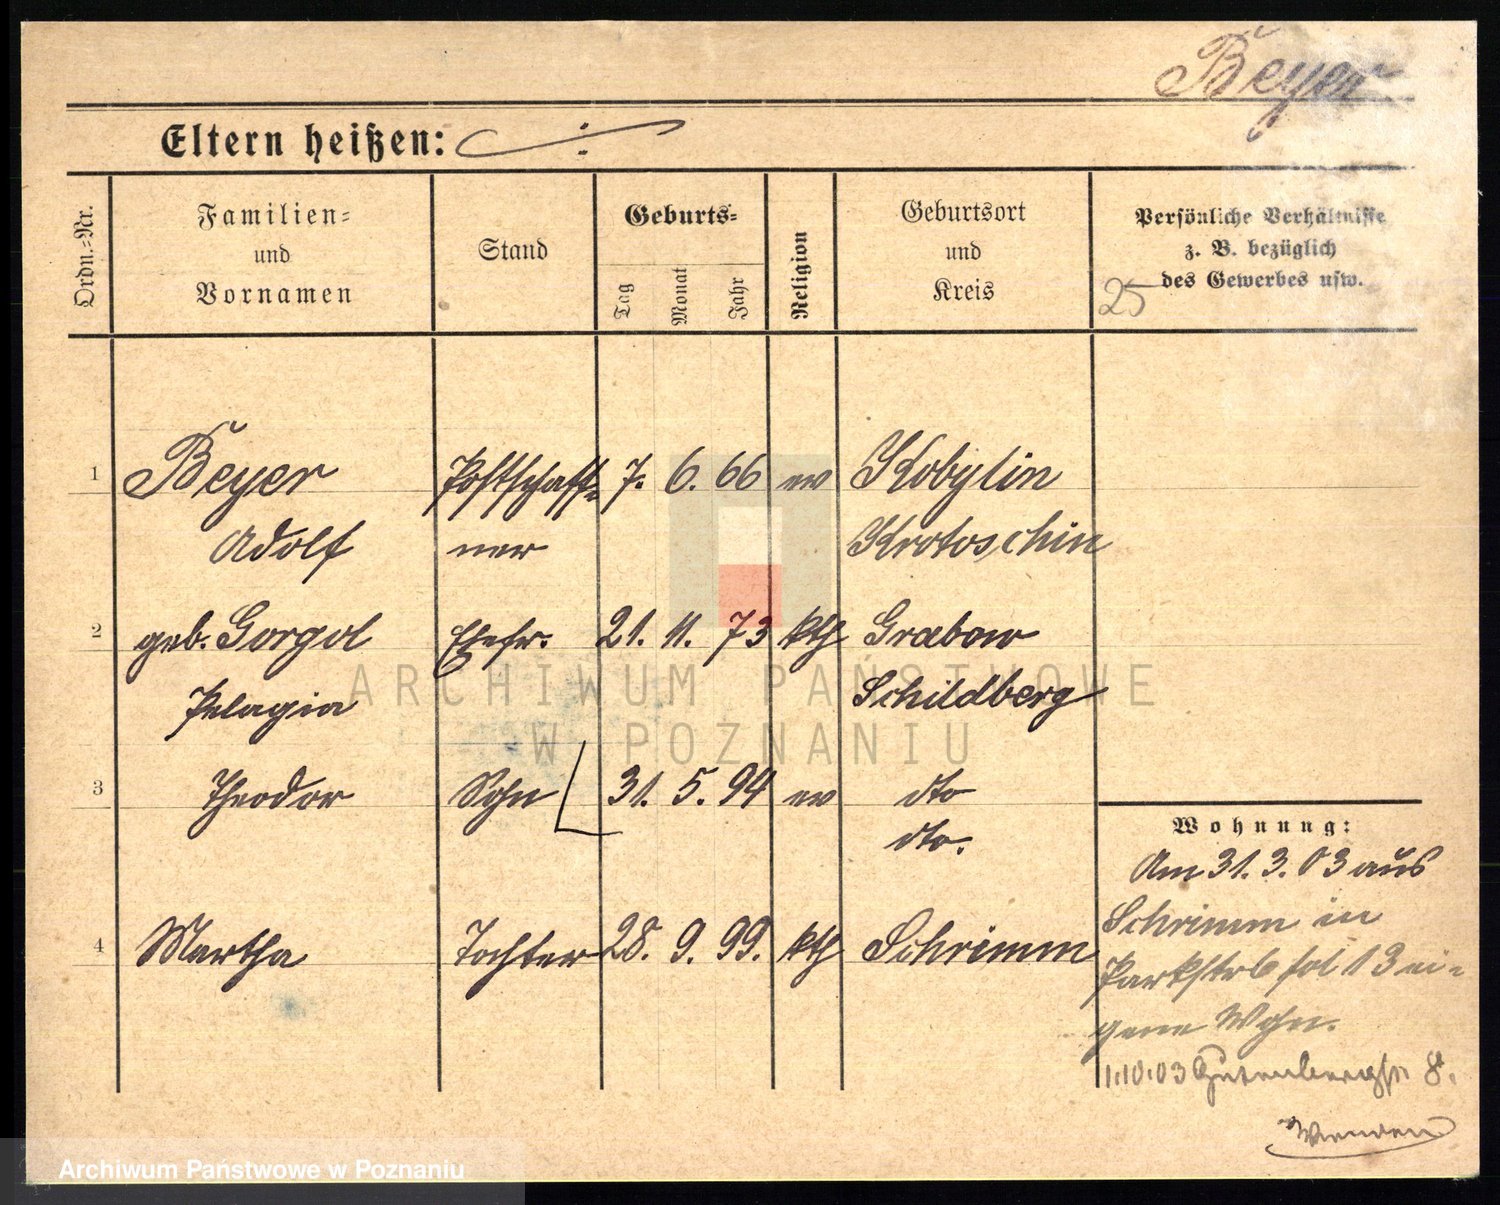 Beyer
Eltern heißen: ./.
Ordn.=Nr.
Familien=
und
Vornamen
Stand
Geburts=
Tag
Monat
Jahr
Religion
Geburtsort
und
Kreis
Persönliche Verhältnisse
z. B. bezüglich
des Gewerbes usw.
25
1 Beyer Postschaff= 7. 6. 66 ev Kobylin
Adolf ner Krotoschin
2 geb. Gorgol Ehefr. 21. 11. 73 kth Grabow
Pelagia Schildberg
3 Theodor Sohn 31. 5. 94 ev dto
dto.
4 Martha Tochter 28. 9. 99. kth Schrimm
Wohnung:
Am 31. 3. 03 aus
Schrimm in
Parkstr 13 ei=
gene Wohn.
1.10.03 Gutenbergstr 8.
Wenden
ARCHIWUM PAŃSTWOWE
W POZNANIU
Archiwum Państwowe w Poznaniu